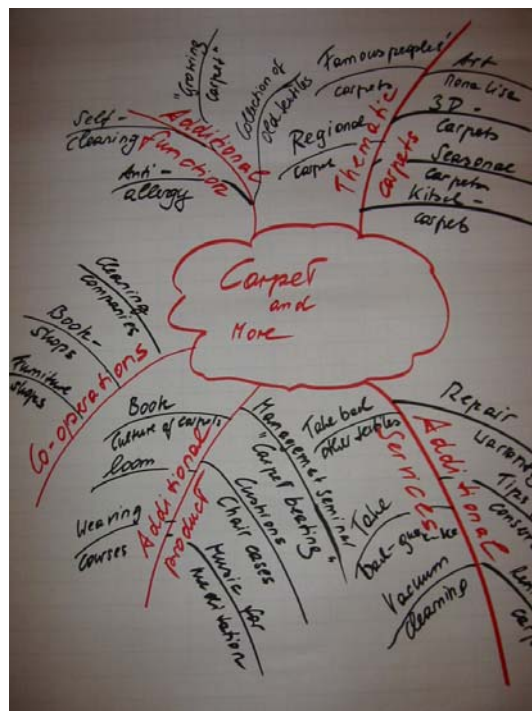 Carpet
and
More
Additional
function
Self-
cleaning
Anti-
allergy
"Growing
Carpet"
Collection of
old textiles
Thematic
carpets
Famous peoples'
carpets
Regional
carpet
Art
Mona Lisa
3D-
carpets
Seasonal
carpets
Kitsch-
carpets
Co-operations
Cleaning
companies
Book-
shops
Furniture
shops
Additional
product
Book
Culture of carpets
loom
Weaving
courses
Management seminar
"Carpet beating
"
Cushions
Chair cases
Music for
meditation
Additional
Services
Take back
other textiles
Take
Vacuum
cleaning
Repair